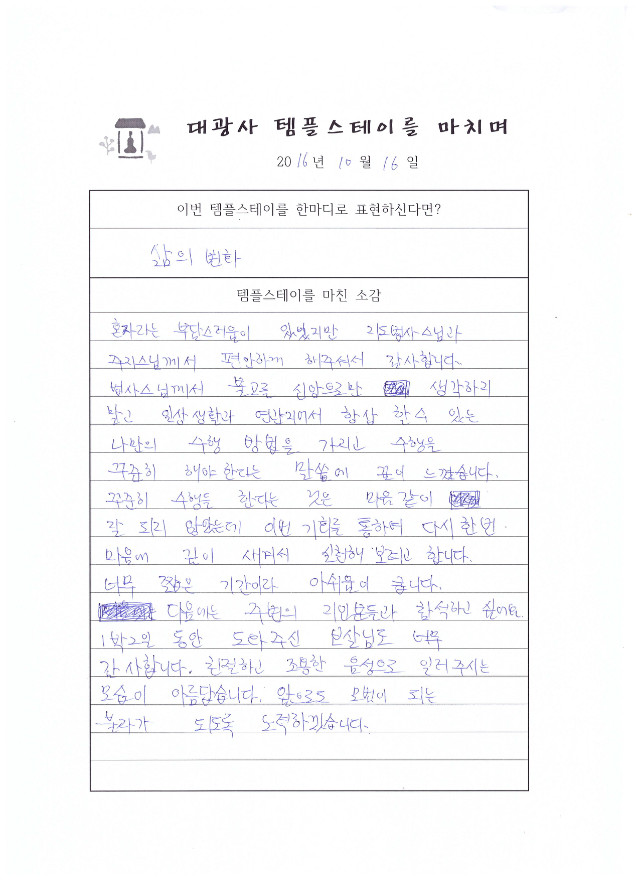 대광사 템플스테이를 마치며
2016년 10월 16일
이번 템플스테이를 한마디로 표현하신다면?
삶의 변화
템플스테이를 마친 소감
혼자라는 부담스러움이 있었지만 지도법사스님과
주지스님께서 편안하게 해주셔서 감사합니다.
법사스님께서 불교를 신앙으로만 생각하지
말고 일상 생활과 연관지어서 항상 할 수 있는
나만의 수행 방법을 가지고 수행을
꾸준히 해야 한다는 말씀에 깊이 느꼈습니다.
꾸준히 수행을 한다는 것은 마음 같이
잘 되지 않았는데 이번 기회를 통하여 다시 한번
마음에 깊이 새겨서 실천해 보려고 합니다.
너무 짧은 기간이라 아쉬움이 큽니다.
다음에는 주변의 지인분들과 참석하고 싶어요.
1박2일 동안 도와 주신 보살님도 너무
감사합니다. 친절하고 조용한 음성으로 일러 주시는
모습이 아름답습니다. 앞으로도 모범이 되는
불자가 되도록 노력하겠습니다.